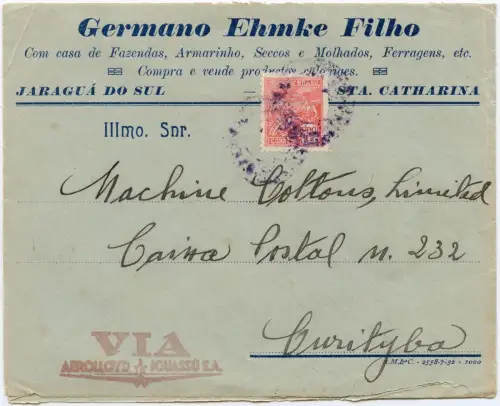 Germano Ehmke Filho
Com casa de Fazendas, Armarinho, Seccos e Molhados, Ferragens, etc.
Compra e vende productos
JARAGUÁ DO SUL — STA. CATHARINA
Illmo. Snr.
Machine Cottons, Limited
Caixa Postal n. 232
Curityba
VIA
AEROLLOYD IGUASSÚ S.A.